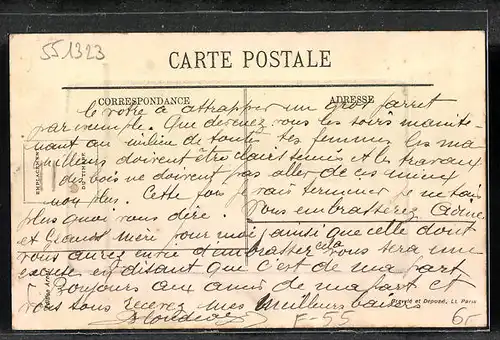 551323
CARTE POSTALE
CORRESPONDANCE
ADRESSE
le votre à attrapper un gros jarret
par exemple. Que devenez vous les soirs mainte-
nant au milieu de toutes ses femmes les ma-
doivent être clair semés et les travaux
du bois ne doivent pas aller de ces mieux
non plus. Cette fois je vais terminer je ne sais
plus quoi vous dire. Vous embrasserez
et Grand Mère pour moi, ainsi que celle dont
vous aurez envie d'embrasser cela vous sera une
excuse en disant que c'est de ma part
Bonjours aux amis de ma part et
vous tous recevez mes meilleurs baisers
EMPLACEMENT
DU TIMBRE
Modèle et Déposé, Lt. Paris
F-55
6,-